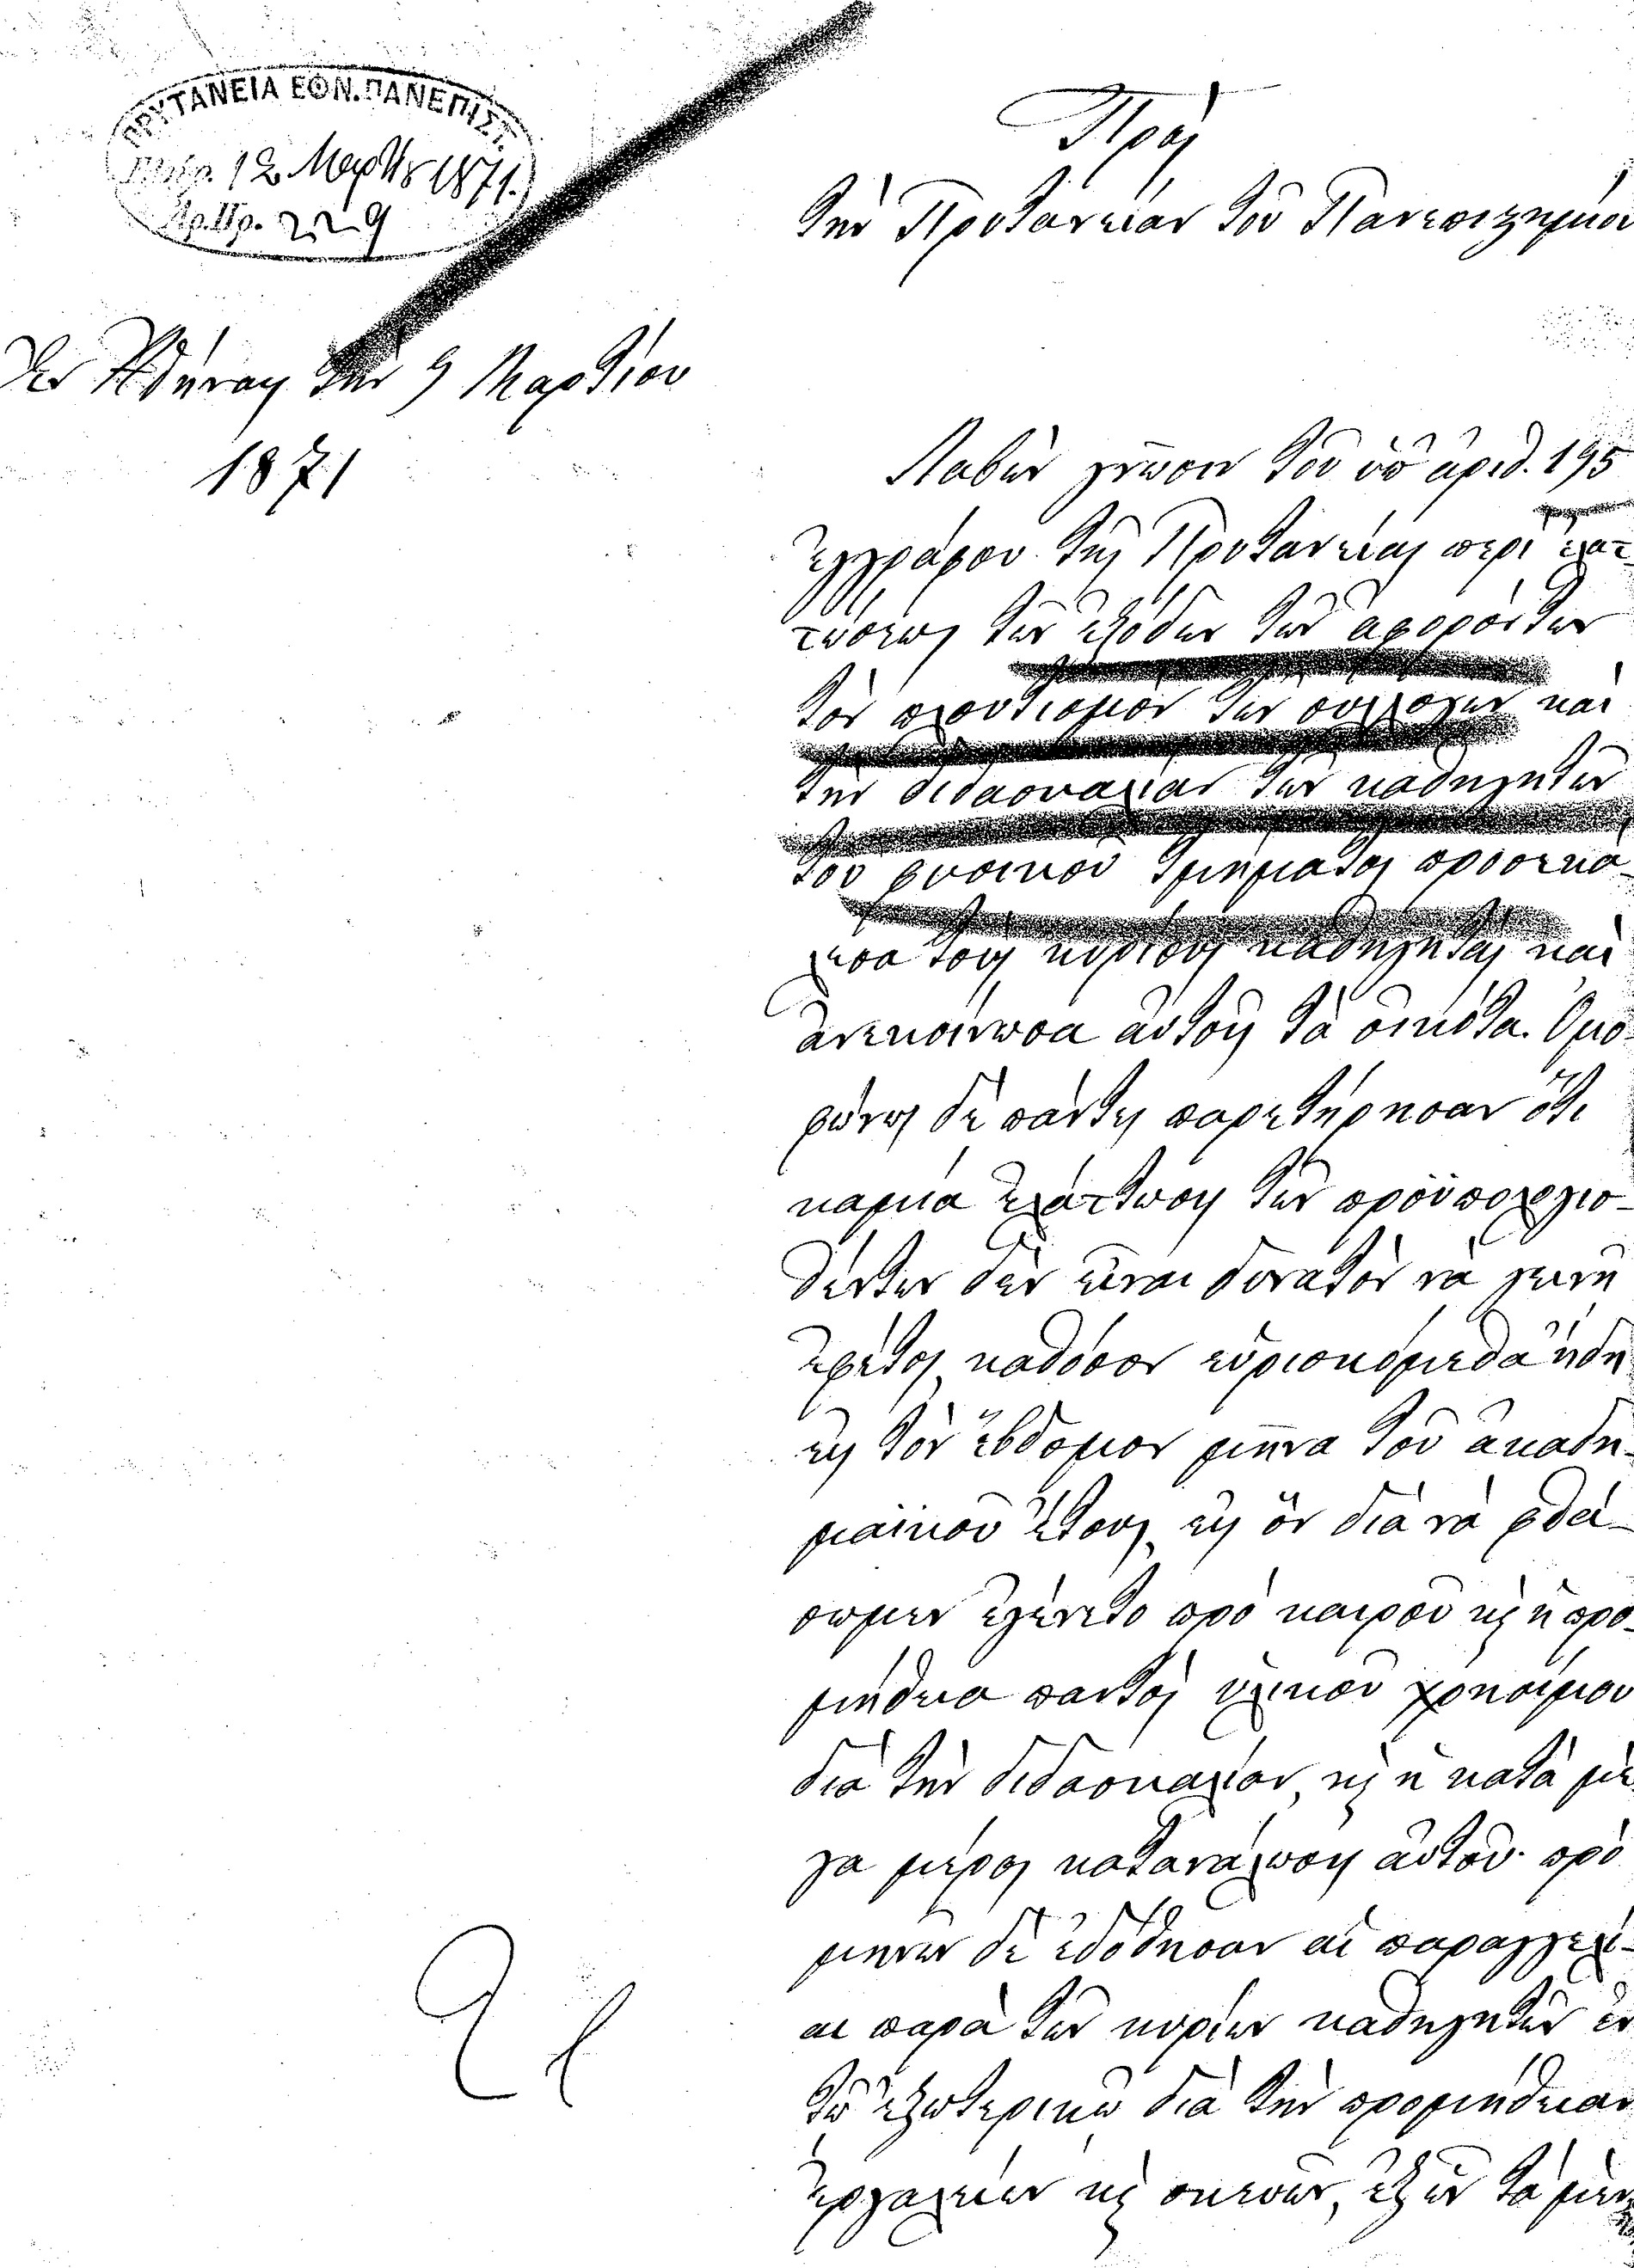 ΠΡΥΤΑΝΕΙΑ ΕΘΝ. ΠΑΝΕΠΙΣΤ.
12 Μαρτίου 1871.
Αρ.Πρ. 229
Πρὸς
τὴν Πρυτανείαν τοῦ Πανεπιστημίου
Ἐν Ἀθήναις τὴν 9 Μαρτίου
1871
Λαβὼν γνῶσιν τοῦ ὑπ' ἀριθ. 195
ἐγγράφου τῆς Πρυτανείας περὶ ἐλατ-
τώσεως τῶν ἐξόδων τῶν ἀφορόντων
τὸν πλουτισμὸν τῶν συλλογῶν καὶ
τὴν διδασκαλίαν τῶν καθηγητῶν
τοῦ φυσικοῦ τμήματος προσεκά-
λεσα τοὺς κυρίους καθηγητὰς καὶ
ἀνεκοίνωσα αὐτοῖς τὰ εἰκότα. Ὁμο-
φώνως δὲ πάντες παρετήρησαν ὅτι
καμμία ἐλάττωσις τῶν προϋπολογισ-
θέντων δὲν εἶναι δυνατὸν νὰ γείνῃ
ἐφέτος, καθόσον εὑρισκόμεθα ἤδη
εἰς τὸν ἕβδομον μῆνα τοῦ ἀκαδη-
μαϊκοῦ ἔτους, εἰς ὃν διὰ νὰ φθά-
σωμεν ἐγένετο πρὸ καιροῦ κ̣ ἡ προ-
μήθεια παντὸς ὑλικοῦ χρησίμου
διὰ τὴν διδασκαλίαν, κ̣ ἡ κατὰ μέ-
γα μέρος κατανάλωσις αὐτοῦ· πρὸ
μηνῶν δὲ ἐδόθησαν αἱ παραγγελί-
αι παρὰ τῶν κυρίων καθηγητῶν ἐν
τῷ ἐξωτερικῷ διὰ τὴν προμήθειαν
ἐργαλείων κ̣ σκευῶν, ἐξ ὧν τὰ μὲν